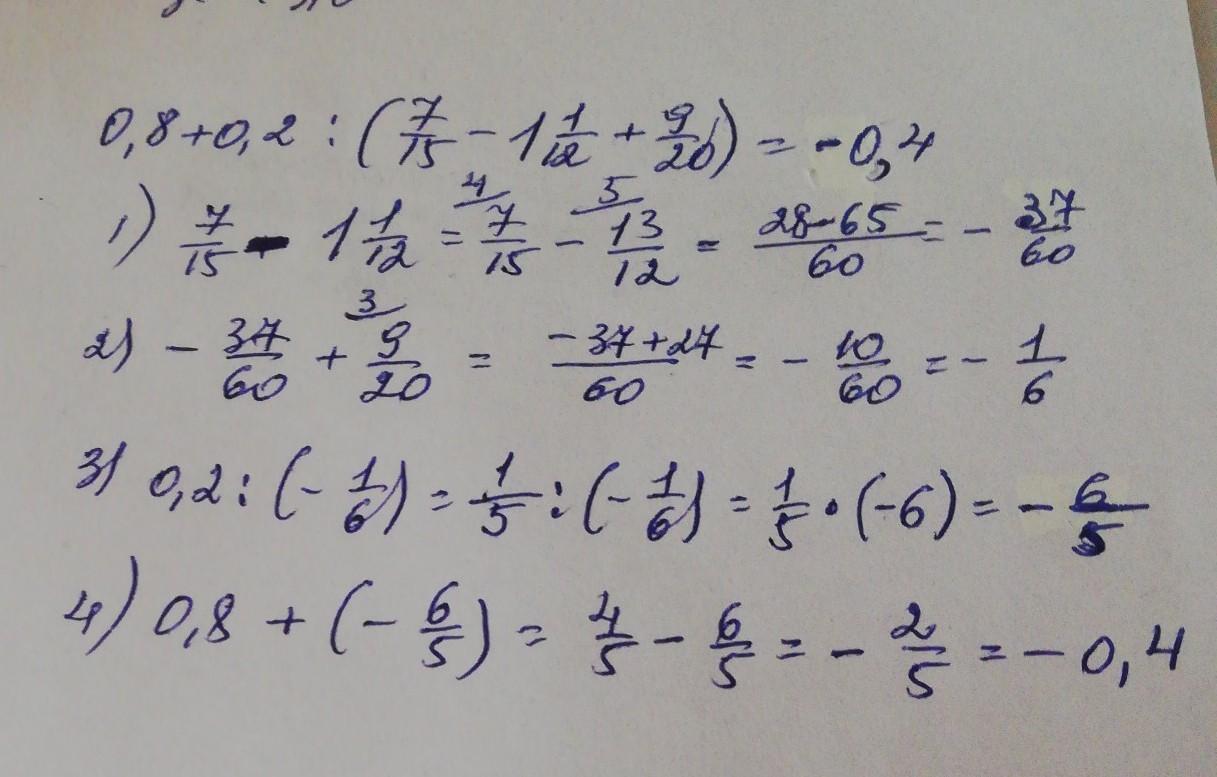 0,8+0,2 : (7/15 - 1 1/12 + 9/20) = -0,4
1) 7/15 - 1 1/12 = 4/ 7/15 - 5/ 13/12 = 28-65/60 = - 37/60
2) - 37/60 + 3/ 9/20 = -37+27/60 = - 10/60 = - 1/6
3) 0,2 : (- 1/6) = 1/5 : (- 1/6) = 1/5 · (-6) = - 6/5
4) 0,8 + (- 6/5) = 4/5 - 6/5 = - 2/5 = - 0,4